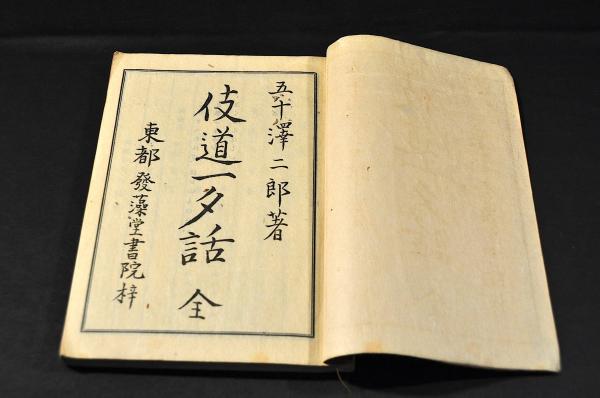 五十澤二郎著
伎道一夕話 全
東都 發藻堂書院梓